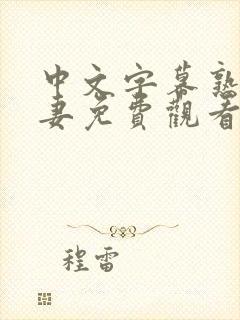 中文字幕熟
妻免费觀看
程雷